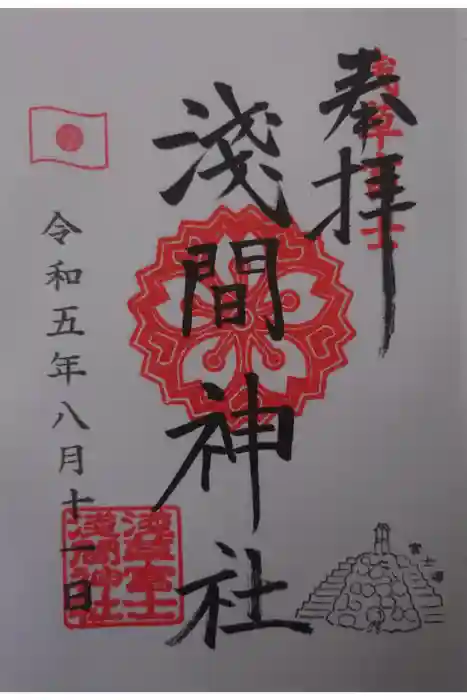 奉拝
浅草富士
淺間神社
令和五年八月十一日
富士塚